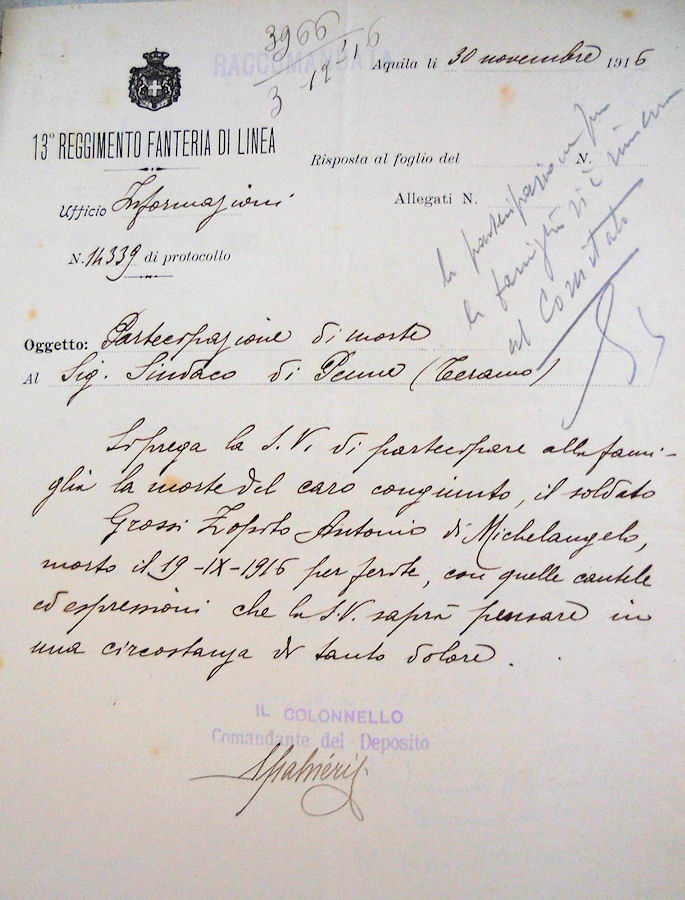 3966
RACCOMANDATA
3-12-'16
Aquila li 30 novembre 1916
13° REGGIMENTO FANTERIA DI LINEA
Risposta al foglio del N.
Ufficio Informazioni
Allegati N.
N. 14339 di protocollo
la partecipazione
la famiglia si è
al Comitato
Oggetto: Partecipazione di morte
Al Sig. Sindaco di Penne (Teramo)
Si prega la S.V. di partecipare alla fami-
glia la morte del caro congiunto, il soldato
Grossi Zopito-Antonio di Michelangelo,
morto il 19-IX-1916 per ferite, con quelle cautele
ed espressioni che la S.V. saprà pensare in
una circostanza di tanto dolore.
IL COLONNELLO
Comandante del Deposito